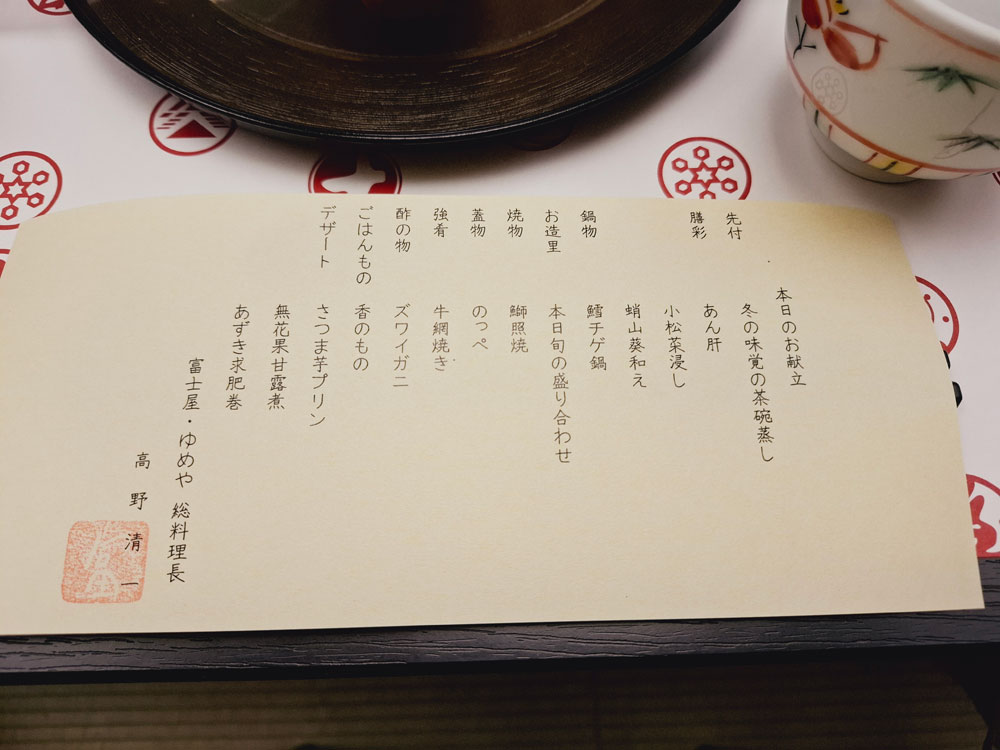 本日のお献立
先付 冬の味覚の茶碗蒸し
膳彩 あん肝
小松菜浸し
蛸山葵和え
鍋物 鱈チゲ鍋
お造里 本日旬の盛り合わせ
焼物 鰤照焼
蓋物 のっぺ
強肴 牛網焼き
酢の物 ズワイガニ
ごはんもの 香のもの
デザート さつま芋プリン
無花果甘露煮
あずき求肥巻
富士屋・ゆめや 総料理長
高野清一